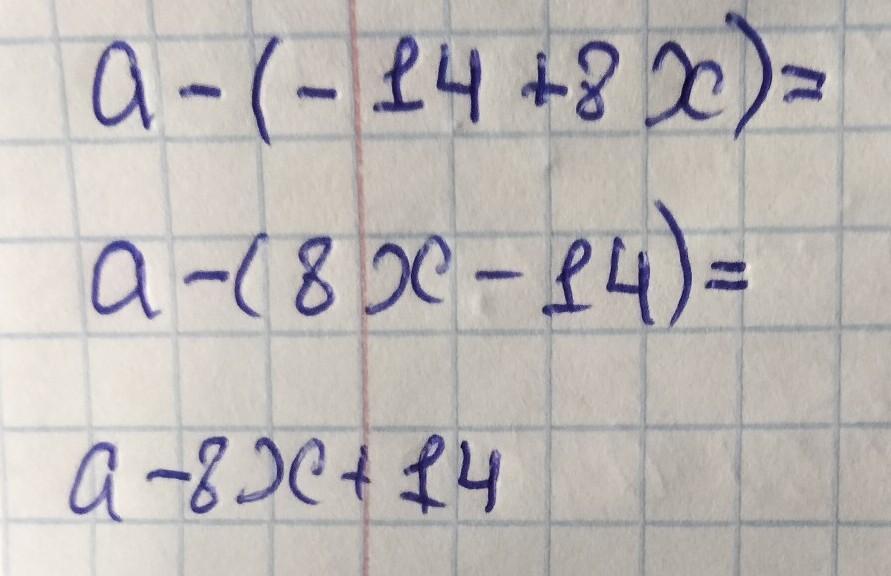 a - (- 14 + 8x) =
a - (8x - 14) =
a - 8x + 14